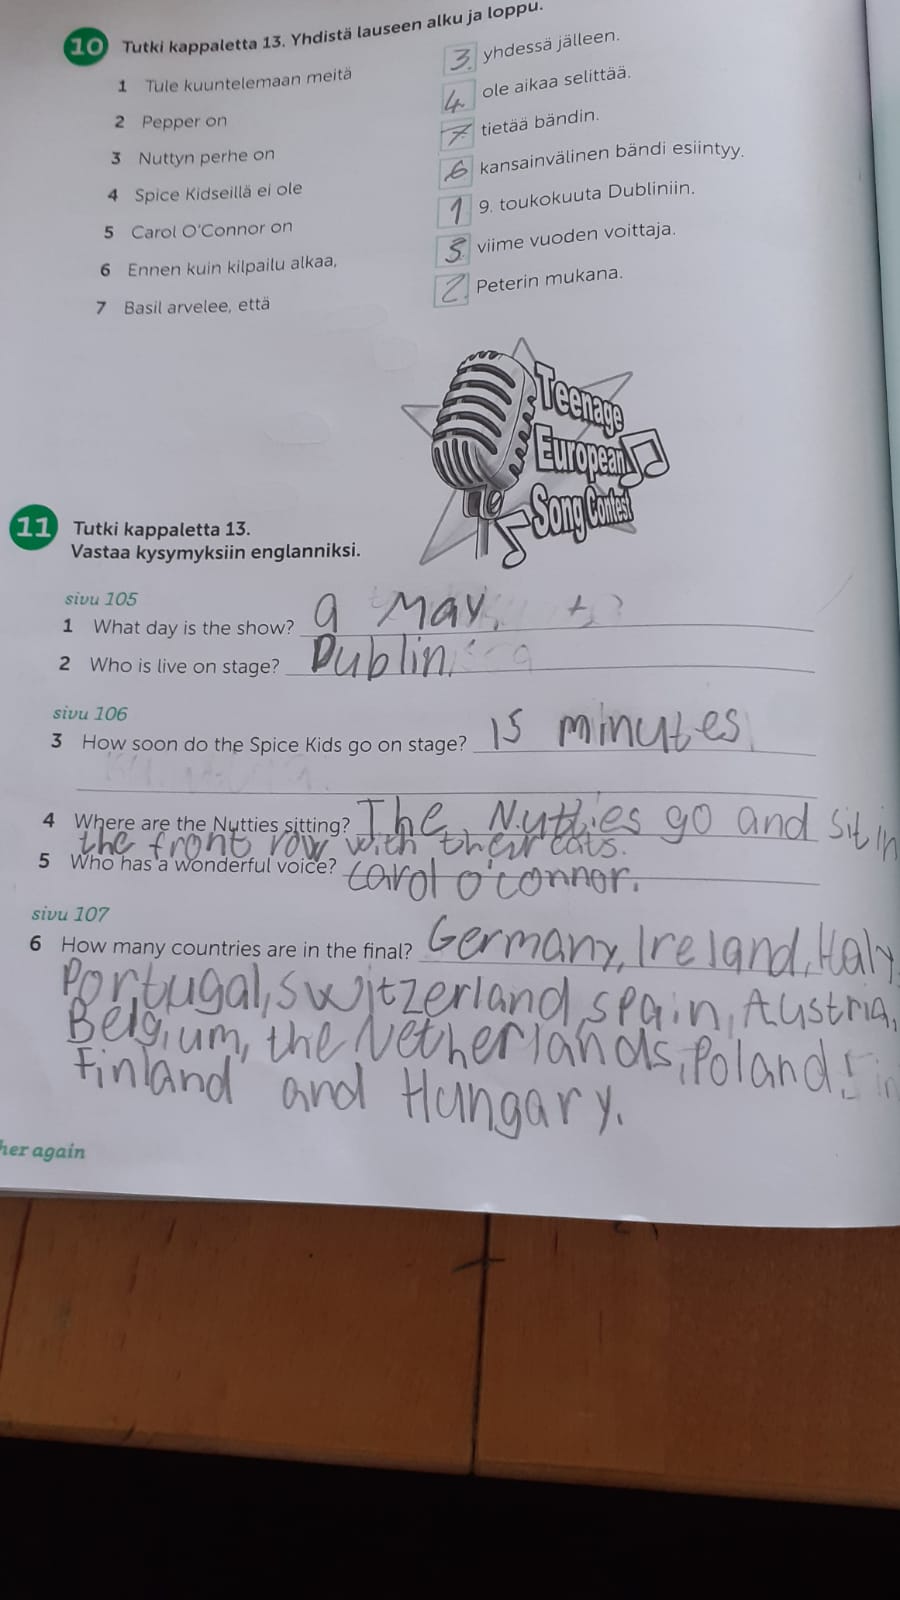 10 Tutki kappaletta 13. Yhdistä lauseen alku ja loppu.
1 Tule kuuntelemaan meitä
2 Pepper on
3 Nuttyn perhe on
4 Spice Kidseillä ei ole
5 Carol O'Connor on
6 Ennen kuin kilpailu alkaa,
7 Basil arvelee, että
3. yhdessä jälleen.
4 ole aikaa selittää.
7. tietää bändin.
6 kansainvälinen bändi esiintyy.
1 9. toukokuuta Dubliniin.
5. viime vuoden voittaja.
2. Peterin mukana.
Teenage
European
Song Contest
11 Tutki kappaletta 13.
Vastaa kysymyksiin englanniksi.
sivu 105
1 What day is the show? 9 May.
2 Who is live on stage? Dublin.
sivu 106
3 How soon do the Spice Kids go on stage? 15 minutes
4 Where are the Nutties sitting? The Nutties go and sit in
the front row with their cats.
5 Who has a wonderful voice? Carol o'connor.
sivu 107
6 How many countries are in the final? Germany, Ireland, Italy,
Portugal, switzerland, spain, Austria,
Belgium, the Netherlands, Poland,
Finland and Hungary.
her again